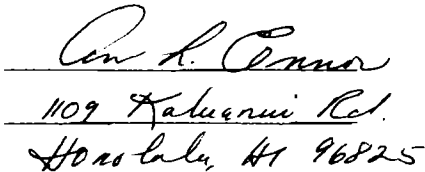 Ann L. Connor
1109 Kaluanui Rd.
Honolulu, HI 96825